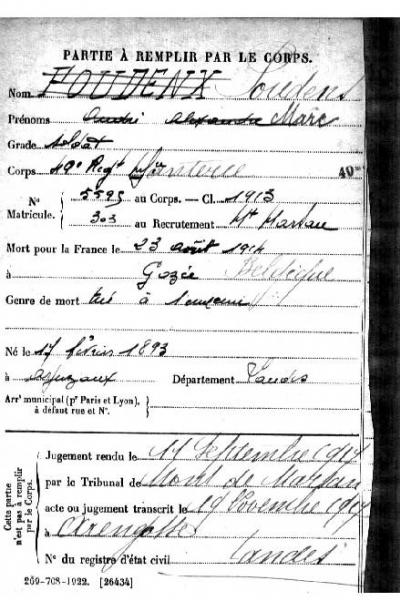 PARTIE À REMPLIR PAR LE CORPS.
Nom POUDENX Loudens
Prénoms André Alexandre Marc
Grade soldat
Corps 49e Regt d'Infanterie 49e
N° Matricule. { 5595 au Corps. — Cl. 1913
303 au Recrutement Mt Marsan
Mort pour la France le 23 août 1914
à Gozée Belgique
Genre de mort tué à l'ennemi
Né le 17 février 1893
à Arjuzanx Département Landes
Arrt municipal (pr Paris et Lyon), à défaut rue et N°.
Cette partie n'est pas à remplir par le Corps.
Jugement rendu le 11 Septembre 1917
par le Tribunal de Mont de Marsan
acte ou jugement transcrit le 19 Novembre 1917
à Arengosse
N° du registre d'état civil Landes
269-708-1922. [26434]